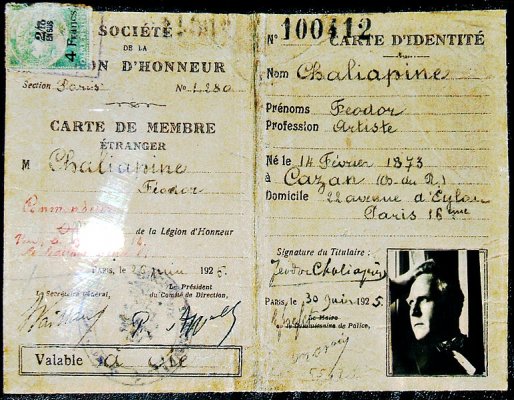 2 frs
EN SUS
4 Francs
SOCIÉTÉ
DE LA
ON D'HONNEUR
Section Paris N° 1.280
CARTE DE MEMBRE
ÉTRANGER
M Chaliapine
Féodor
de la Légion d'Honneur
PARIS, le juin 1925
Le Secrétaire Général,
Le Président
du Comité de Direction,
Valable à vie
N° 100412
CARTE D'IDENTITÉ
Nom Chaliapine
Prénoms Feodor
Profession Artiste
Né le 14 Février 1873
à Cazan
Domicile 22 avenue d'Eylau
Paris 16ème
Signature du Titulaire :
Feodor Chaliapine
PARIS, le 30 juin 1925
Le Maire
de Police,